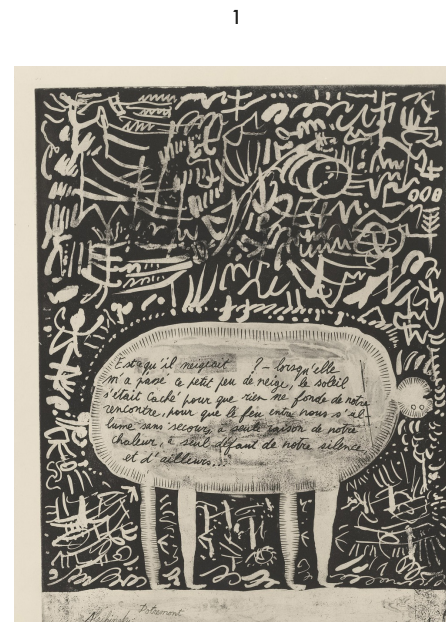 1
Est-ce qu'il neigeait ? – lorsqu'elle
m'a passé ce petit jeu de neige, le soleil
s'était caché pour que rien ne fonde de notre
rencontre, pour que le feu entre nous s'al-
lume sans secours, à seule raison de notre
chaleur, à seul défaut de notre silence,
et d'ailleurs...
Dotremont